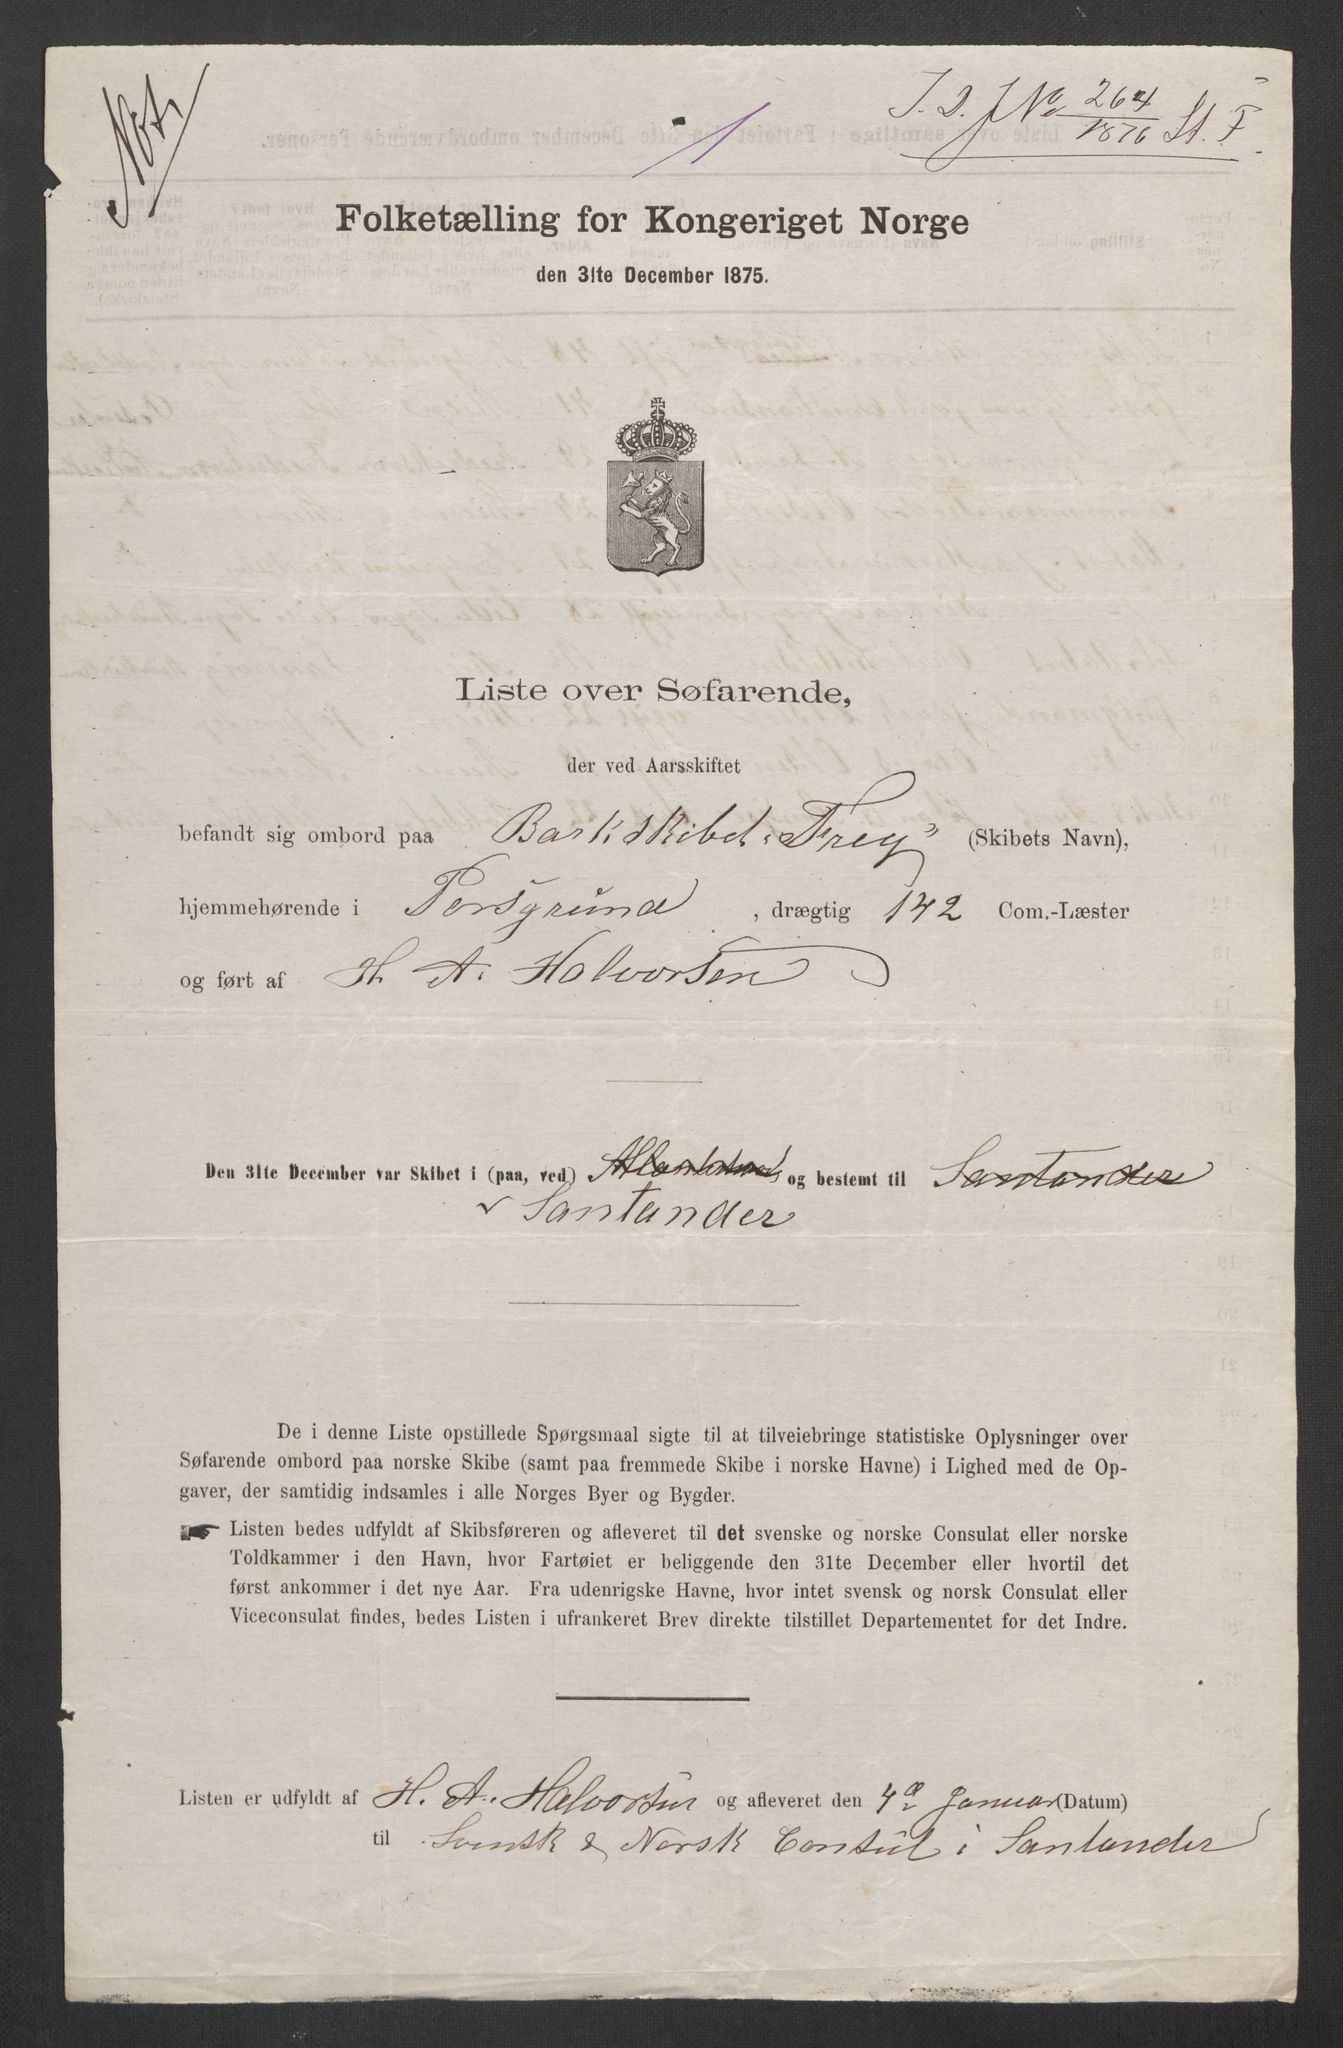 Not.
I. D. J No 264/1876 St. F.
1
Folketælling for Kongeriget Norge
den 31te December 1875.
Liste over Søfarende,
der ved Aarsskiftet
befandt sig ombord paa Barkskibet „Frey" (Skibets Navn),
hjemmehørende i Porsgrund, drægtig 142 Com.-Læster
og ført af H. A. Halvorsen
Den 31te December var Skibet i (paa, ved) og bestemt til Santander
Santander
De i denne Liste opstillede Spørgsmaal sigte til at tilveiebringe statistiske Oplysninger over
Søfarende ombord paa norske Skibe (samt paa fremmede Skibe i norske Havne) i Lighed med de Op-
gaver, der samtidig indsamles i alle Norges Byer og Bygder.
☛ Listen bedes udfyldt af Skibsføreren og afleveret til det svenske og norske Consulat eller norske
Toldkammer i den Havn, hvor Fartøiet er beliggende den 31te December eller hvortil det
først ankommer i det nye Aar. Fra udenrigske Havne, hvor intet svensk og norsk Consulat eller
Viceconsulat findes, bedes Listen i ufrankeret Brev direkte tilstillet Departementet for det Indre.
Listen er udfyldt af H. A. Halvorsen og afleveret den 4de Januar (Datum)
til Svensk & Norsk Consul i Santander